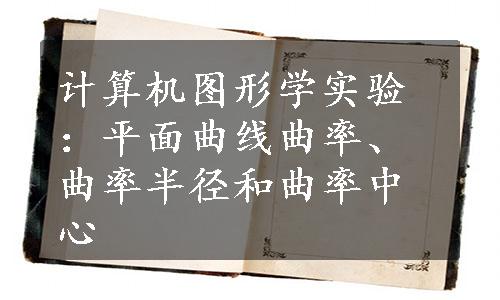 计算机图形学实验
：平面曲线曲率、
曲率半径和曲率中
心